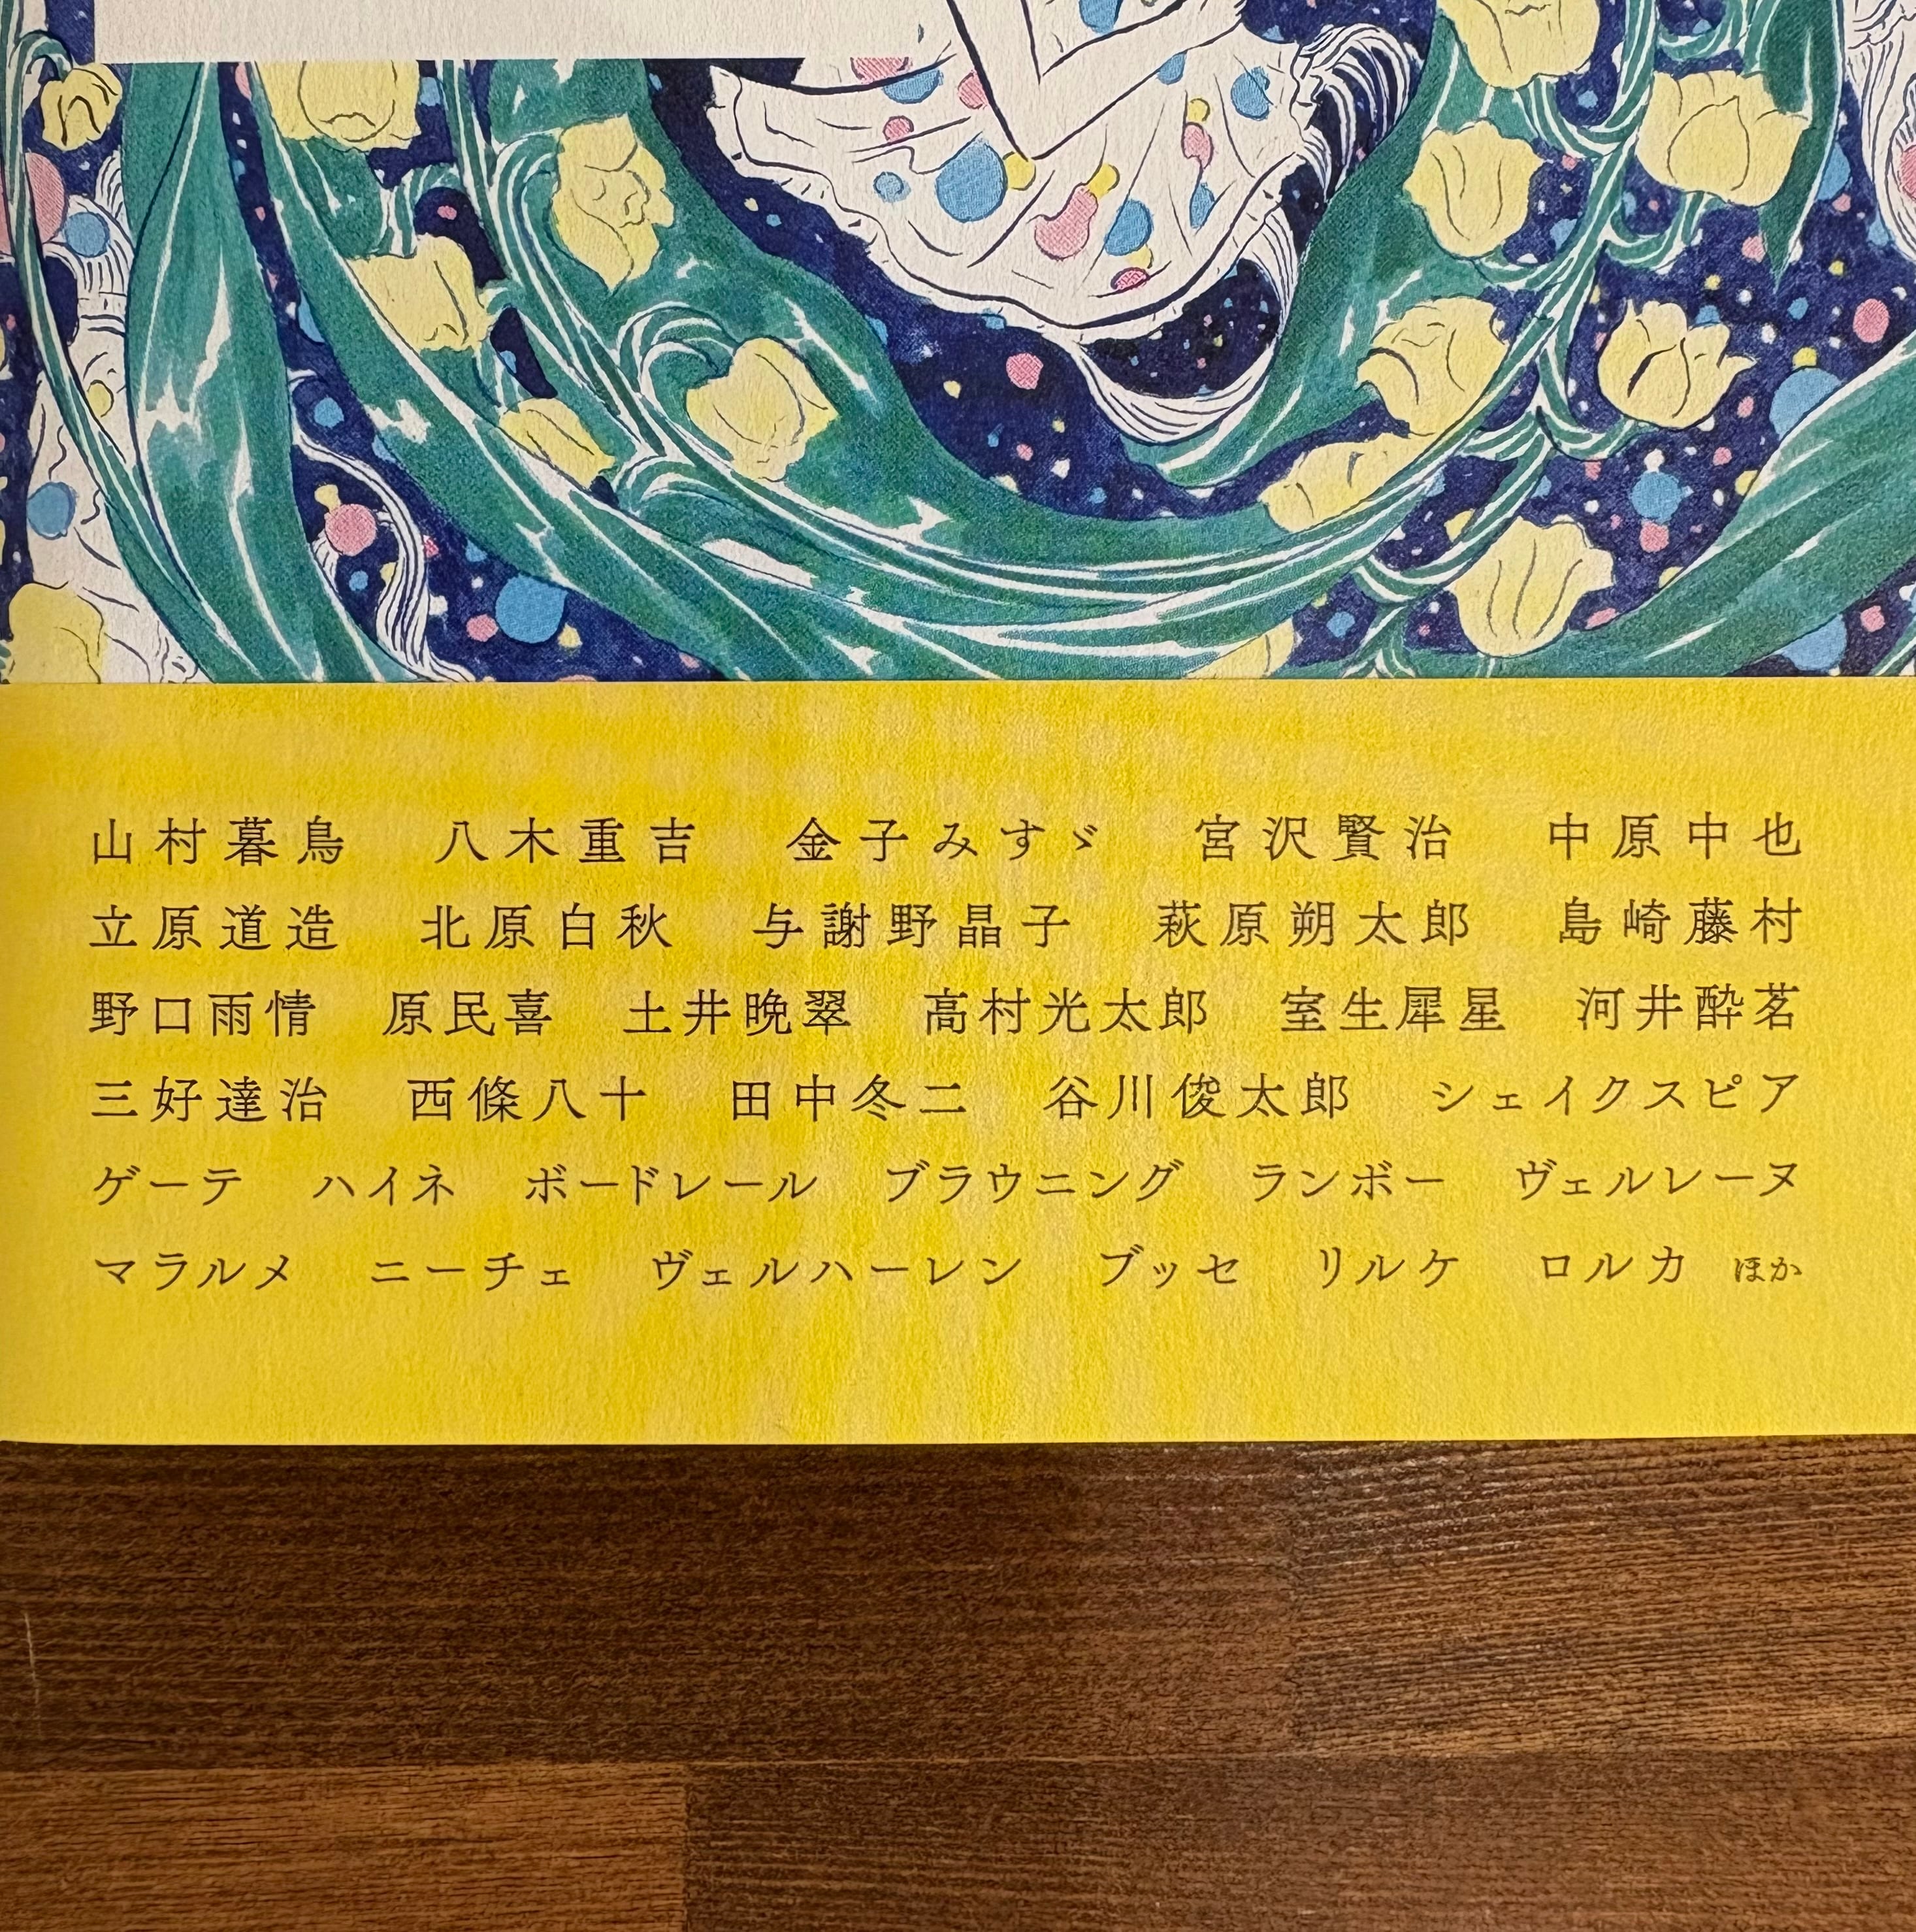 山村暮鳥　八木重吉　金子みすゞ　宮沢賢治　中原中也
立原道造　北原白秋　与謝野晶子　萩原朔太郎　島崎藤村
野口雨情　原民喜　土井晩翠　高村光太郎　室生犀星　河井酔茗
三好達治　西條八十　田中冬二　谷川俊太郎　シェイクスピア
ゲーテ　ハイネ　ボードレール　ブラウニング　ランボー　ヴェルレーヌ
マラルメ　ニーチェ　ヴェルハーレン　ブッセ　リルケ　ロルカ　ほか